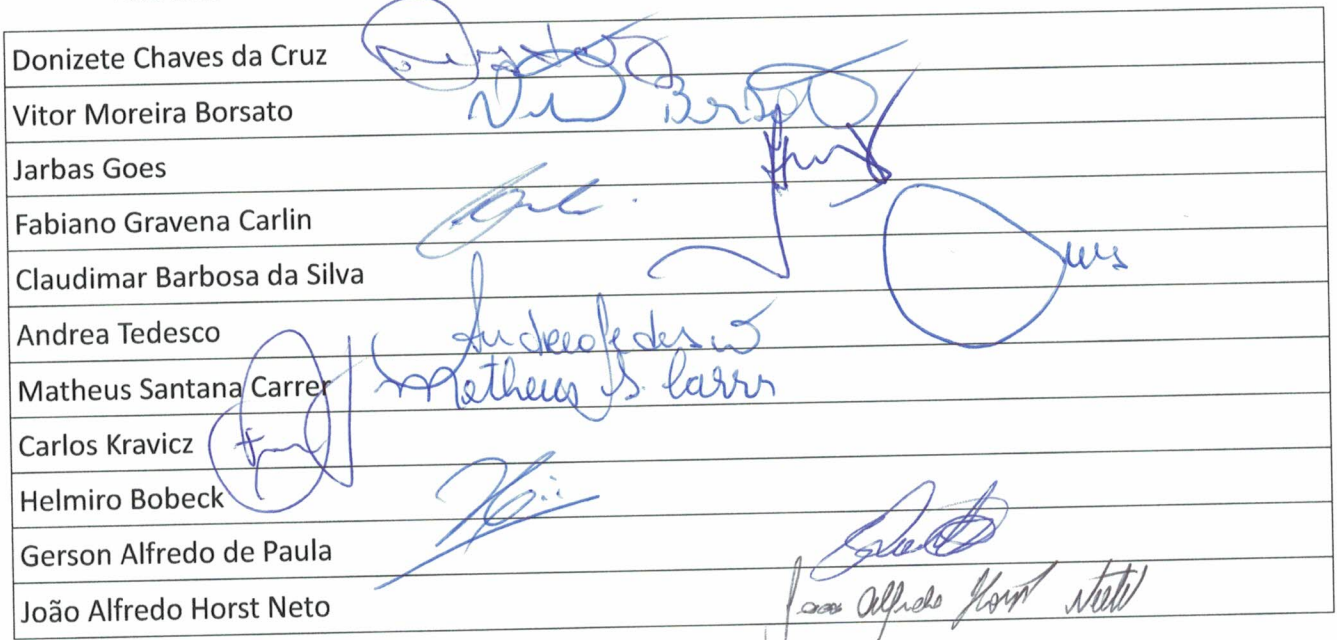 Donizete Chaves da Cruz
Vitor Moreira Borsato Borsato
Jarbas Goes
Fabiano Gravena Carlin
Claudimar Barbosa da Silva
Andrea Tedesco Andrea Tedesco
Matheus Santana Carrer Matheus S. Carrer
Carlos Kravicz
Helmiro Bobeck
Gerson Alfredo de Paula
João Alfredo Horst Neto Joao Alfredo Horst Neto